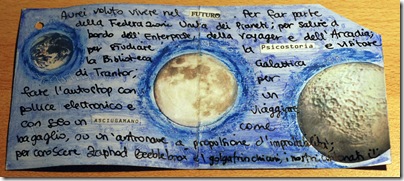 Avrei voluto vivere nel FUTURO Per far parte
della Federazione Unita dei Pianeti; per salire a
bordo dell'Enterprise, della Voyager e dell'Arcadia;
per studiare la Psicostoria e visitare
la Biblioteca Galattica
di Trantor; per
fare l'autostop con un
pollice elettronico e viaggiare
con solo un ASCIUGAMANO come
bagaglio, su un'astronave a propulsione d'improbabilità;
per conoscere Zaphod Beeblebrox e i golgafrinchiani, i nostri